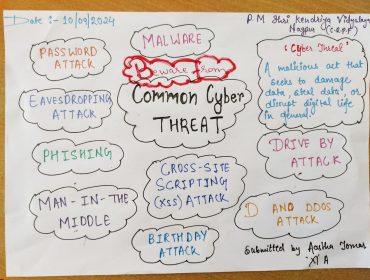 Date :- 10/09/2024
P.M Shri Kendriya Vidyalaya
Nagpur (C.R.P.F)
PASSWORD
ATTACK
MALWARE
Beware from
Common Cyber
THREAT
"Cyber Threat"
A malicious act that
seeks to damage
data, steal data, or
disrupt digital life
in general.
EAVESDROPPING
ATTACK
PHISHING
DRIVE BY
ATTACK
CROSS-SITE
SCRIPTING
(XSS) ATTACK
MAN-IN-THE
MIDDLE
D AND DDOS
ATTACK
BIRTHDAY
ATTACK
Submitted by Aastha Tomar
XI A